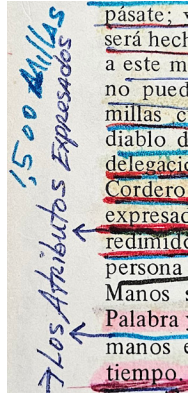 1,500 Millas
→ Los Atributos Expresados
pásate;
será hech
a este m
no pued
millas c
diablo
delegacio
Cordero
expresac
redimido
persona
Manos s
Palabra
manos e
tiempo.